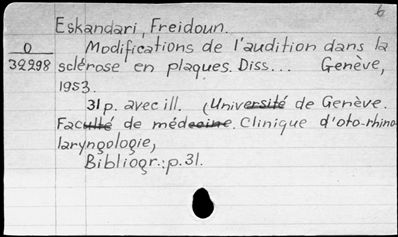 6
Eskandari, Freidoun.
0 Modifications de l'audition dans la
39298 sclérose en plaques. Diss... Genève,
1953.
31 p. avec ill. (Université de Genève.
Faculté de médecine. Clinique d'oto-rhino-
laryngologie,
Bibliogr.: p. 31.